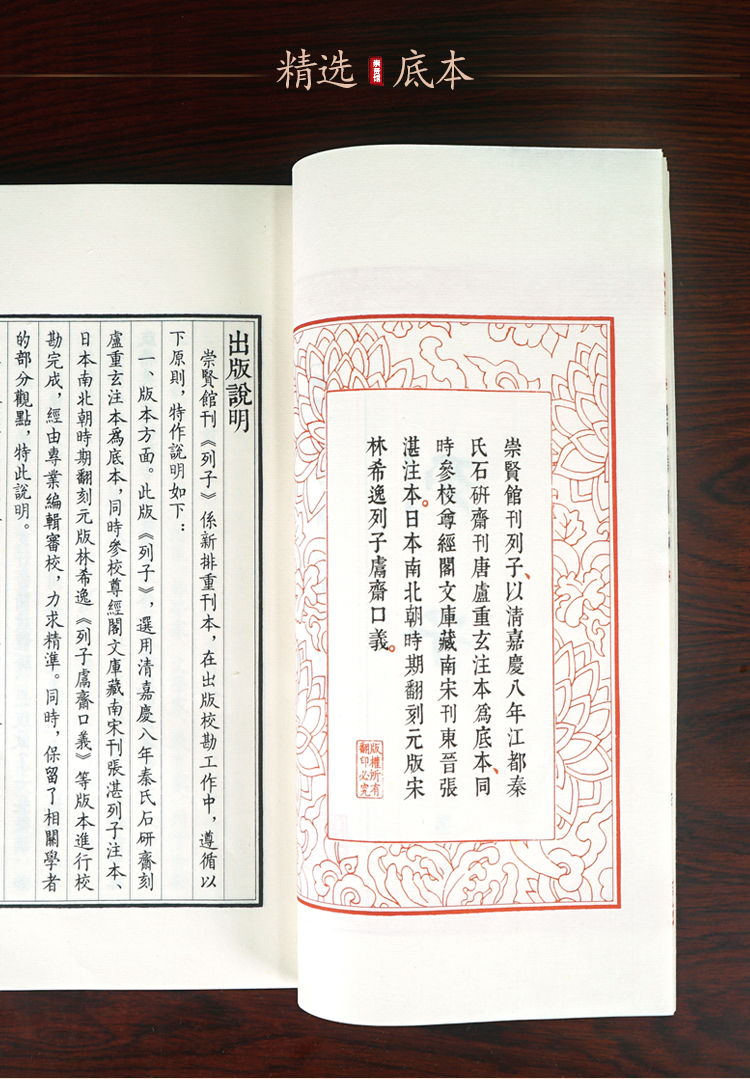 精选
崇贤馆
底本
崇賢館刊列子、以清嘉慶八年江都秦
氏石研齋刊唐盧重玄注本為底本、同
時參校尊經閣文庫藏南宋刊東晉張
湛注本。日本南北朝時期翻刻元版宋
林希逸列子鬳齋口義。
版權所有
翻印必究
出版說明
崇賢館刊《列子》係新排重刊本，在出版校勘工作中，遵循以
下原則，特作說明如下：
一、版本方面。此版《列子》，選用清嘉慶八年秦氏石研齋刻
盧重玄注本為底本，同時參校尊經閣文庫藏南宋刊張湛列子注本、
日本南北朝時期翻刻元版林希逸《列子鬳齋口義》等版本進行校
勘完成，經由專業編輯審校，力求精準。同時，保留了相關學者
的部分觀點，特此說明。